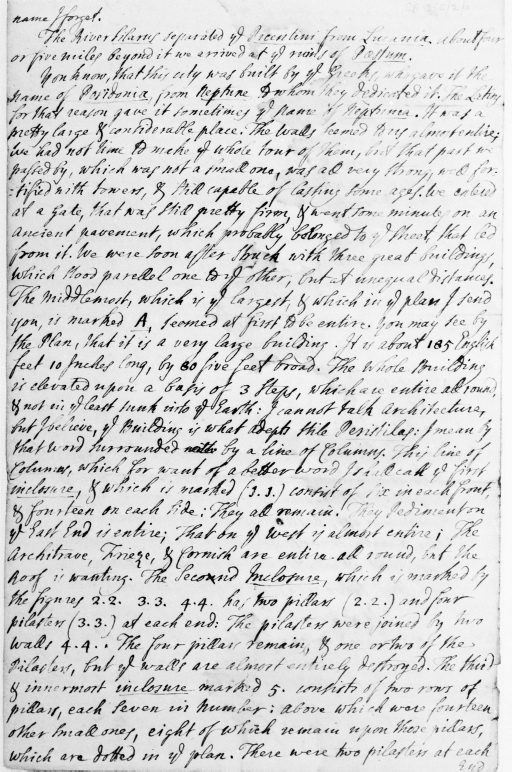 name I forget.
The River Silarus separated ye Picentini from Lucania. about four
or five miles beyond it we arrived at ye ruins of Pæstum.
You know, that this city was built by ye Greeks, who gave it the
name of Posidonia, from Neptune to whom they dedicated it. The Latins
for that reason gave it sometimes ye Name of Neptunia. It was a
pretty large & considerable place. The Walls seemed to us almost entire;
we had not time to make ye whole tour of them, but that part we
passed by, which was not a small one, was all very strong, well for-
:tified with Towers, & still capable of lasting some ages. We entred
at a Gate, that was still pretty firm, & went some minutes on an
ancient pavement, which probably belonged to ye street, that led
from it. We were soon after struck with three great buildings,
which stood parellel one to ye other, but at unequal distances.
The middlemost, which is ye largest, & which in ye plan I send
you, is marked A, seemed at first to be entire. You may see by
the Plan, that it is a very large building. It is about 185 English
feet 10 Inches long, by 80 five feet broad. The whole Building
is elevated upon a basis of 3 steps, which are entire all round,
& not in ye least sunk into ye Earth: I cannot talk Architecture,
but I believe, ye Building is what adepts stile Peristilas: I mean by
that word surrounded by a line of Columns. This line of
Columns, which for want of a better word I shall call ye first
inclosure, & which is marked (3.3.) consist of six in each front,
& fourteen on each side: They all remain. They Pediment on
ye East End is entire; That on ye west is almost entire; The
Architrave, Frieze, & Cornish are entire all round, but the
Roof is wanting. The Second Inclosure, which is marked by
the figures 2.2. 3.3. 4.4. has two pillars (2.2.) and four
pilasters (3.3.) at each end: The pilasters were joined by two
walls 4.4. The four pillars remain, & one or two of the
Pilasters, but ye walls are almost entirely destroyed. The third
& innermost inclosure marked 5. consists of two rows of
pillars, each seven in number: above which were fourteen
other small ones, eight of which remain upon those pillars,
which are dotted in ye plan. There were two pilasters at each
End